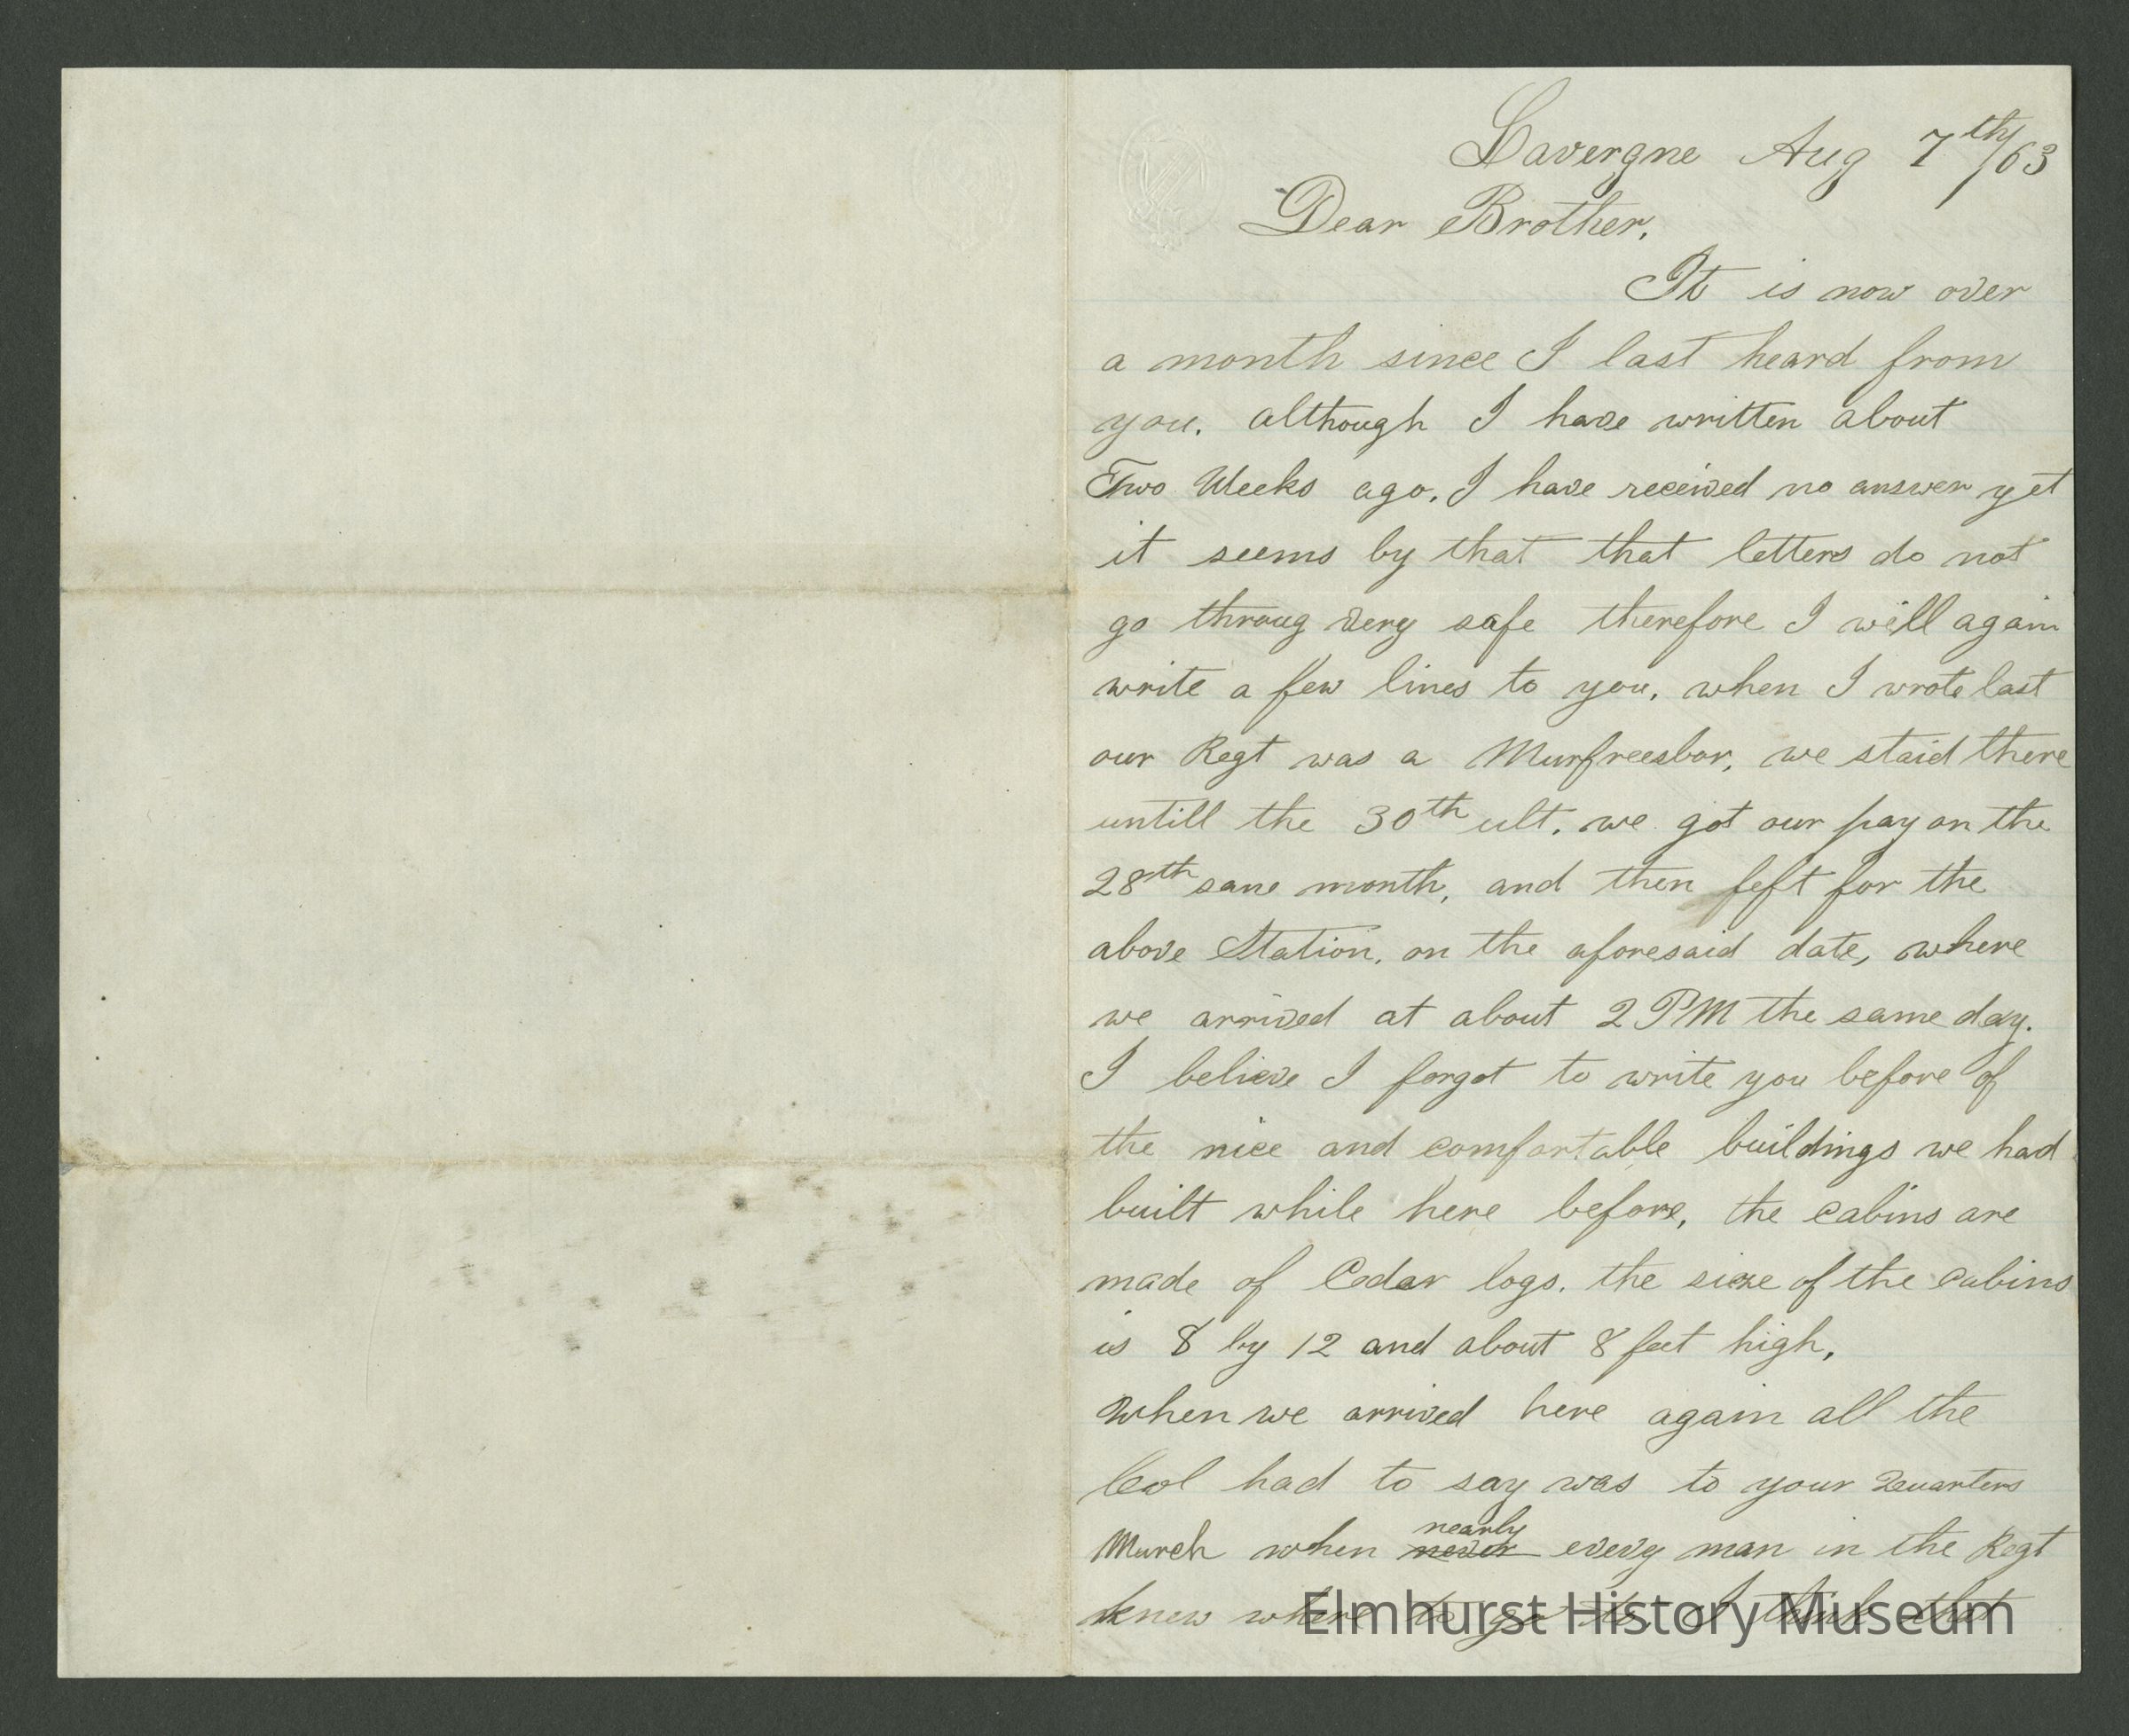 Lavergne Aug 7th/63
Dear Brother.
It is now over
a month since I last heard from
you. although I have written about
Two Weeks ago. I have received no answer yet
it seems by that that letters do not
go throug very safe therefore I will again
write a few lines to you. when I wrote last
our Regt was a Murfreesbor, we staid there
untill the 30th ult. we got our pay on the
28th same month, and then left for the
above Station. on the aforesaid date, where
we arrived at about 2 PM the same day.
I believe I forgot to write you before of
the nice and comfortable buildings we had
built while here before, the cabins are
made of Cedar logs. the size of the cabins
is 8 by 12 and about 8 feet high,
When we arrived here again all the
Col had to say was to your Quarters
nearly
March when never every man in the Regt
knew where to go to. I think that
Elmhurst History Museum